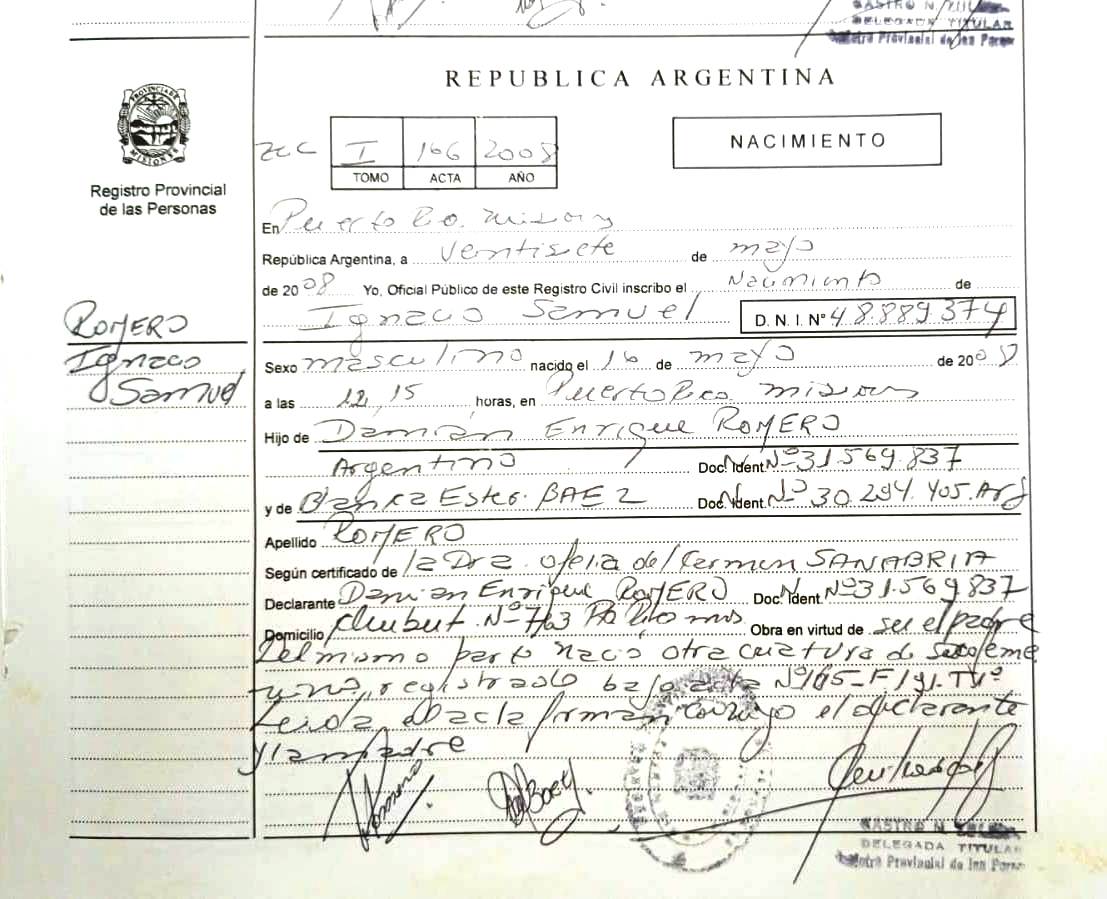 DELEGADA TITULAR
REPUBLICA ARGENTINA
PROVINCIA DE MISIONES
Registro Provincial
de las Personas
I 166 2008
TOMO ACTA AÑO
NACIMIENTO
En Puerto Rco. Misiones
República Argentina, a ventisiete de mayo
de 2008 Yo, Oficial Público de este Registro Civil inscribo el Nacimiento de
Ignacio Samuel D. N. I. Nº 48.889.374
ROMERO
Ignacio
Samuel
Sexo masculino nacido el 16 de mayo de 2008
a las 12,15 horas, en Puerto Rco. Misiones
Hijo de Damián Enrique ROMERO
Argentino Doc. Ident. Nº 31.569.837
y de Blanca Ester BAEZ Doc. Ident. Nº 30.294.405. Arg
Apellido ROMERO
Según certificado de la Dra. Ofelia del Carmen SANABRIA
Declarante Damian Enrique ROMERO Doc. Ident. Nº 31.569.837
Domicilio Chubut Nº 763 Obra en virtud de ser el padre
Del mismo parto nacio otra criatura de sexo feme
nino, registrado bajo acta Nº 165-
Leida el acta firman conmigo el declarante
y la madre
DELEGADA TITULAR